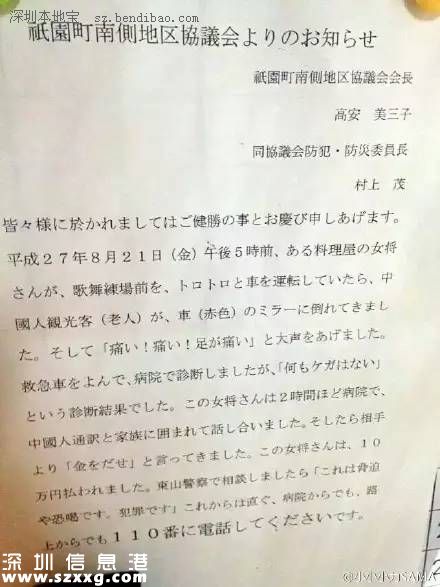 深圳本地宝 sz.bendibao.com
祇園町南側地区協議会よりのお知らせ
祇園町南側地区協議会会長
高安 美三子
同協議会防犯・防災委員長
村上 茂
皆々様に於かれましてはご健勝の事とお慶び申しあげます。
平成27年8月21日(金)午後5時前、ある料理屋の女将
さんが、歌舞練場前を、トロトロと車を運転していたら、中
國人観光客(老人)が、車(赤色)のミラーに倒れてきまし
た。そして「痛い!痛い!足が痛い」と大声をあげました。
救急車をよんで、病院で診断しましたが、「何もケガはない」
という診断結果でした。この女将さんは2時間ほど病院で、
中國人通訳と家族に囲まれて話し合いました。そしたら相手
より「金をだせ」と言ってきました。この女将さんは、10
万円払われました。東山警察で相談しましたら「これは脅迫
や恐喝です。犯罪です」これからは直ぐ、病院からでも、路
上からでも110番に電話してくださいです。
深圳信息港
www.szxxg.com